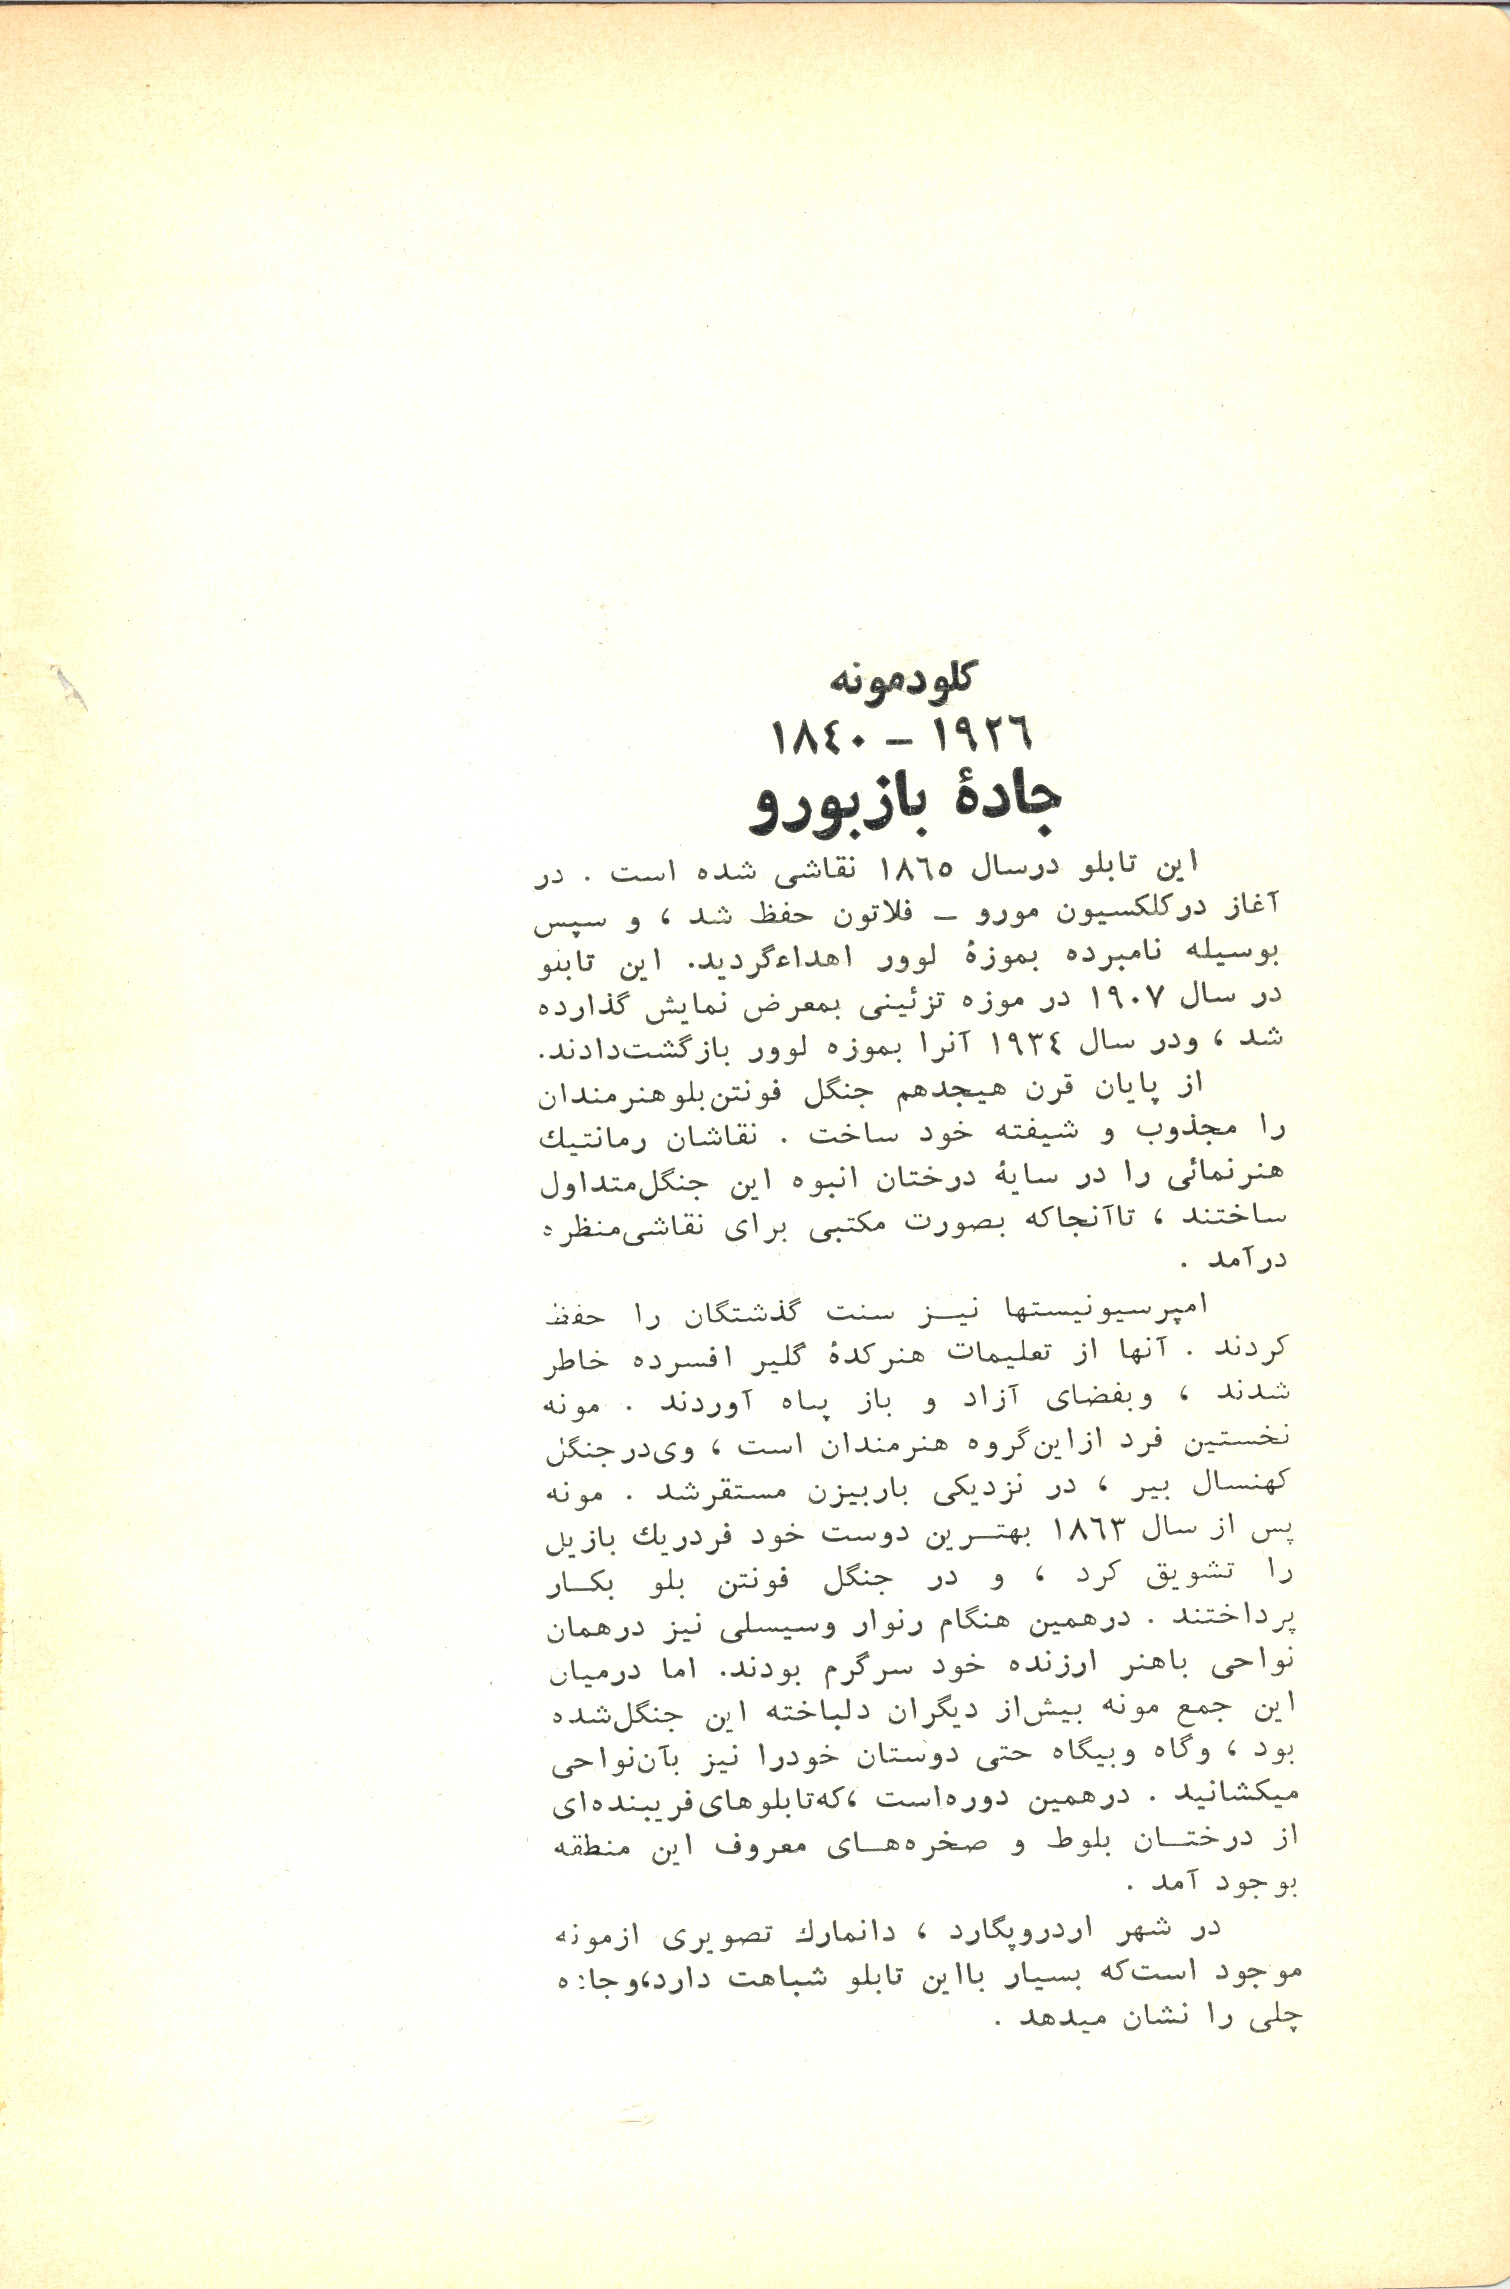 کلودمونه
١٨٤٠ – ١٩٢٦
جادهٔ بازبورو
این تابلو درسال ١٨٦٥ نقاشی شده است . در
آغاز درکلکسیون مورو – فلاتون حفظ شد ، و سپس
بوسیله نامبرده بموزهٔ لوور اهداءگردید. این تابلو
در سال ١٩٠٧ در موزه تزئینی بمعرض نمایش گذارده
شد ، ودر سال ١٩٣٤ آنرا بموزه لوور بازگشت‌دادند.
از پایان قرن هیجدهم جنگل فونتن‌بلوهنرمندان
را مجذوب و شیفته خود ساخت . نقاشان رمانتیك
هنرنمائی را در سایهٔ درختان انبوه این جنگل‌متداول
ساختند ، تاآنجاکه بصورت مکتبی برای نقاشی‌منظره
درآمد .
امپرسیونیستها نیــز سنت گذشتگان را حفظ
کردند . آنها از تعلیمات هنرکدهٔ گلیر افسرده خاطر
شدند ، وبفضای آزاد و باز پناه آوردند . مونه
نخستین فرد ازاین‌گروه هنرمندان است ، وی‌درجنگل
کهنسال بیر ، در نزدیکی باربیزن مستقرشد . مونه
پس از سال ١٨٦٣ بهتــرین دوست خود فردریك بازیل
را تشویق کرد ، و در جنگل فونتن بلو بکــار
پرداختند . درهمین هنگام رنوار وسیسلی نیز درهمان
نواحی باهنر ارزنده خود سرگرم بودند. اما درمیان
این جمع مونه بیش‌از دیگران دلباخته این جنگل‌شده
بود ، وگاه وبیگاه حتی دوستان خودرا نیز بآن‌نواحی
میکشانید . درهمین دوره‌است ،که‌تابلوهای‌فریبنده‌ای
از درختــان بلوط و صخره‌هــای معروف این منطقه
بوجود آمد .
در شهر اردروپگارد ، دانمارك تصویری ازمونه
موجود است‌که بسیار بااین تابلو شباهت دارد،وجاده
چلی را نشان میدهد .